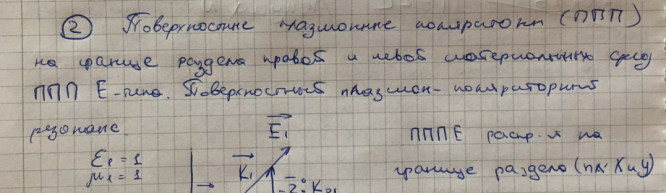 ② Поверхностные плазмонные поляритоны (ППП)
на границе раздела правой и левой материальных сред
ППП Е-типа. Поверхностный плазмон-поляритонный
резонанс.
E₁ ПППЕ распр-я на
ε₁ = 1 K₁ границе раздела (пл. X и Y)
μ₁ = 1